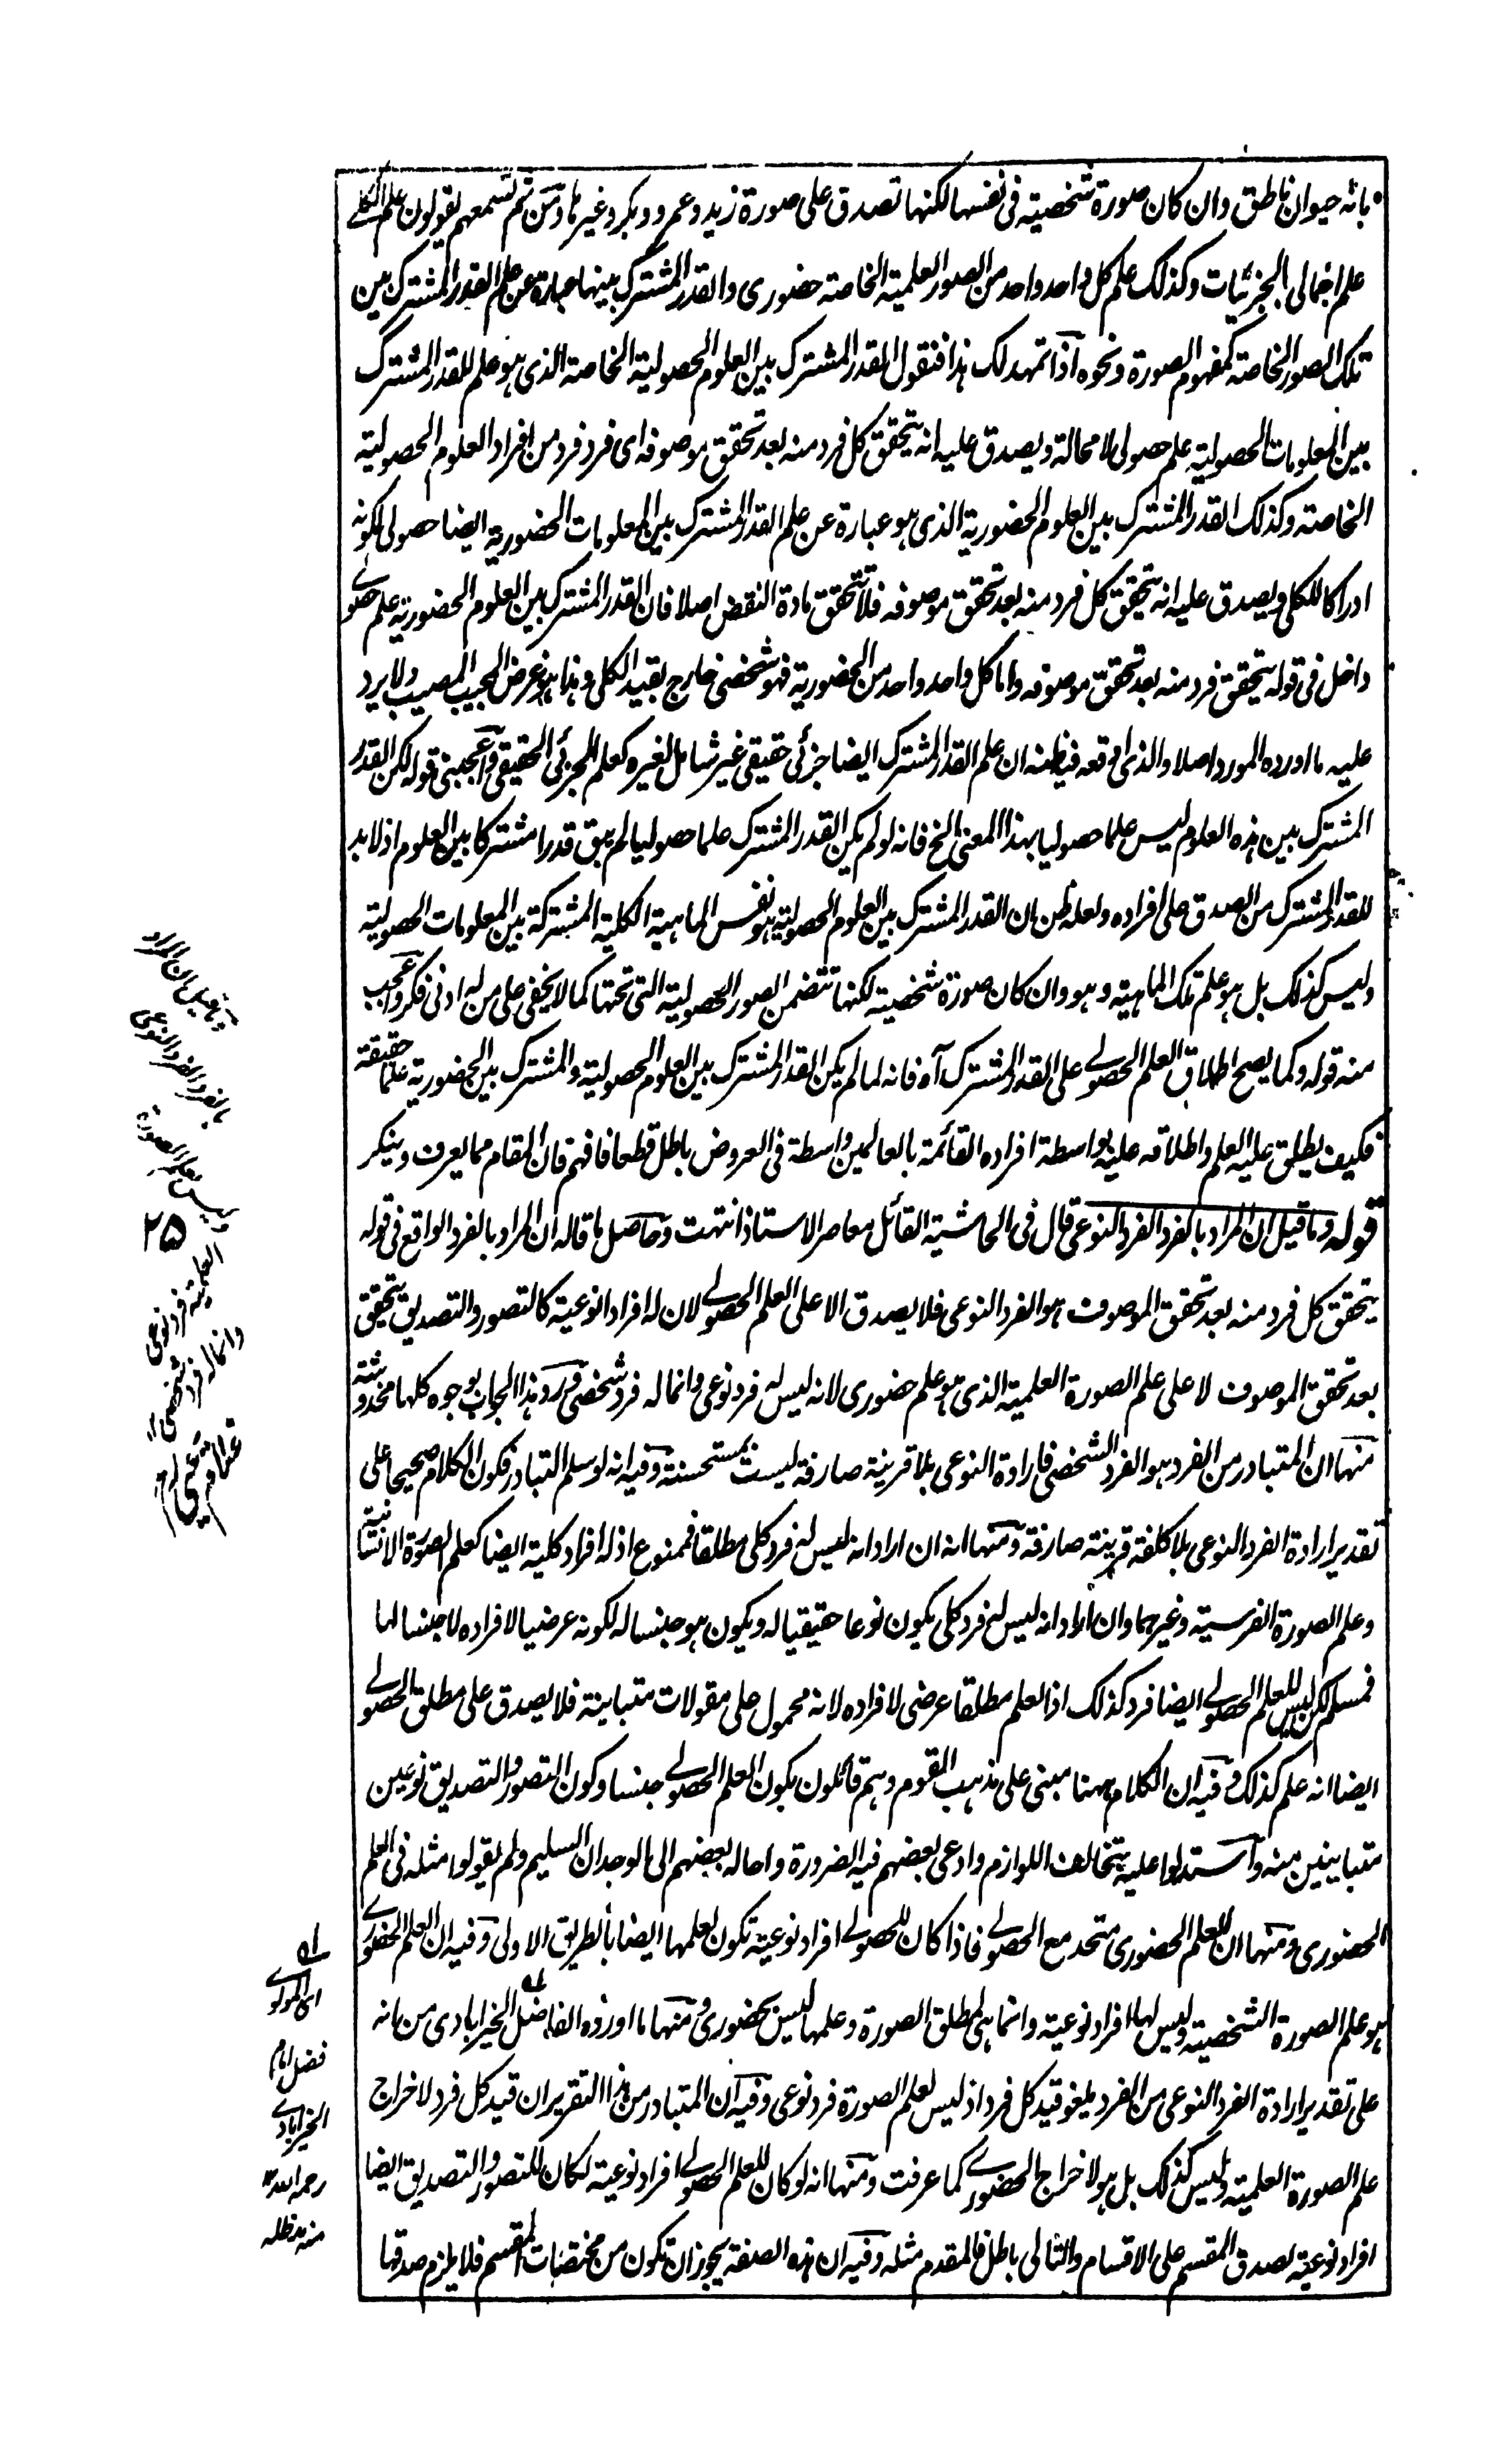 بانه حيوان ناطق وان كان صورة شخصية فى نفسها لكنها تصدق على صورة زيد وعمرو وبكر وغيرها ومن ثم تسمعهم يقولون علم الكلى
علم اجمالى بالجزئيات وكذلك علم كل واحد واحد من الصور العلمية الخاصة حضورى والقدر المشترك بينها عبارة عن علم القدر المشترك بين
تلك الصور الخاصة كمفهوم الصورة ونحوه اذا تمهد لك هذا فنقول القدر المشترك بين العلوم الحصولية الخاصة الذى هو علم للقدر المشترك
بين المعلومات الحصولية علم حصولى لا محالة ويصدق عليه انه يتحقق كل فرد منه بعد تحقق موصوفه اى فرد فرد من افراد العلوم الحصولية
الخاصة وكذلك القدر المشترك بين العلوم الحضورية الذى هو عبارة عن علم القدر المشترك بين المعلومات الحضورية ايضا حصولى لكونه
ادراكا للكلى ويصدق عليه انه يتحقق كل فرد منه بعد تحقق موصوفه فلا تتحقق مادة النقض اصلا فان القدر المشترك بين العلوم الحضورية علم حصولے
داخل فى قوله يتحقق فرد منه بعد تحقق موصوفه واما كل واحد واحد من الحضورية فهو شخصى خارج بقيد الكلى وهذا هو غرض المجيب المصيب ولا يرد
عليه ما اورده المورد اصلا والذى اوقعه فيظنه ان علم القدر المشترك ايضا جزئى حقيقى غير شامل لغيره كعلم الجزئى الحقيقى واعجبنى قوله لكن القدر
المشترك بين هذه العلوم ليس علما حصوليا بهذا المعنى الخ فانه لو لم يكن القدر المشترك علما حصوليا لم يبق قدرا مشتركا بين العلوم اذ لا بد
للقدر المشترك من الصدق على افراده ولعله ظن ان القدر المشترك بين العلوم الحصولية هو نفس الماهية الكلية المشتركة بين المعلومات الحصولية
وليس كذلك بل هو علم تلك الماهية وهو وان كان صورة شخصية لكنها تتضمن الصور الحصولية التى تحتها كما لا يخفى على من له ادنى فكر واعجب
منه قوله وكما يصح اطلاق العلم الحصولے على القدر المشترك آه فانه لما لم يكن القدر المشترك بين العلوم الحصولية والمشترك بين الحضورية علما حقيقة
فكيف يطلق عليه العلم واطلاقه عليه بواسطة افراده القائمة بالعالمين واسطة فى العروض باطل قطعا فافهم فان المقام مما يعرف وينكر
قوله وما قيل ان المراد بالفرد الفرد النوعى قال فى الحاشية القائل معاصر الاستاذ انتهت وحاصل ما قاله ان المراد بالفرد الواقع فى قوله
يتحقق كل فرد منه بعد تحقق الموصوف هو الفرد النوعى فلا يصدق الا على العلم الحصولے لان له افرادا نوعية كالتصور والتصديق يتحقق
بعد تحقق الموصوف لا على علم الصورة العلمية الذى هو علم حضورى لانه ليس له فرد نوعى وانما له فرد شخصى ورد هذا الجواب بوجوه كلها مخدوشة
منها ان المتبادر من الفرد هو الفرد الشخصى فارادة النوعى بلا قرينة صارفة ليست بمستحسنة وفيه انه لو سلم التبادر فكون الكلام صحيحا على
تقدير ارادة الفرد النوعى بلا كلفة قرينة صارفة ومنها انه ان اراد انه ليس له فرد كلى مطلقا فممنوع اذ له افراد كلية ايضا كعلم الصورة الانسانية
وعلم الصورة الفرسية وغيرهما وان اراد انه ليس له فرد كلى يكون نوعا حقيقيا له ويكون هو جنسا له لكونه عرضيا لافراده لا جنسا لها
فمسلم لكن ليس للعلم الحصولے ايضا فرد كذلك اذ العلم مطلقا عرضى لافراده لانه محمول على مقولات متباينة فلا يصدق على مطلق الحصولے
ايضا انه علم كذلك وفيه ان الكلام ههنا مبنى على مذهب القوم وهم قائلون بكون العلم الحصولے جنسا وكون التصور والتصديق نوعين
متباينين منه واستدلوا عليه بتخالف اللوازم وادعى بعضهم فيه الضرورة واحاله بعضهم الى الوجدان السليم ولم يقولوا مثله فى العلم
الحضورى ومنها ان العلم الحضورى متحد مع الحصولے فاذا كان للحصولے افراد نوعية تكون لعلمها ايضا بالطريق الاولى وفيه ان العلم الحضورے
هو علم الصورة الشخصية وليس لها افراد نوعية وانما هى لمطلق الصورة وعلمها ليس بحضورى ومنها ما اورده الفاضل الخيرابادى من انه
على تقدير ارادة الفرد النوعى من الفرد يلغو قيد كل فرد اذ ليس لعلم الصورة فرد نوعى وفيه ان المتبادر من هذا التقرير ان قيد كل فرد لاخراج
علم الصورة العلمية وليس كذلك بل هو لاخراج الحضورے كما عرفت ومنها انه لو كان للعلم الحصولے افراد نوعية لكان للتصور والتصديق ايضا
افراد نوعية لصدق المقسم على الاقسام والتالى باطل فالمقدم مثله وفيه ان هذه الصفة يجوز ان تكون من مختصات المقسم فلا يلزم صدقها
ان المراد
بالفرد الفرد النوعى
وليس لعلم الصورة
٢٥
العلمية فرد نوعى
وانما له فرد شخصى ١٢
اى المولوے
فضل امام
الخيرابادے
رحمه الله ١٢
منه مد ظله